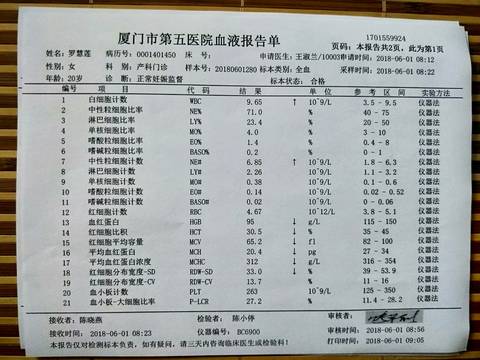 厦门市第五医院血液报告单
1701559924
页码：本报告共2页，此为第1页
姓名：罗慧莲 病历号：0001401450 床 号： 申请医生：王淑兰/10003 申请时间：2018-06-01 08:12
性别：女 科 别：产科门诊 样本号：20180601280 标本类别：全血 采样时间：2018-06-01 08:22
年龄：20岁 诊 断：正常妊娠监督 标本状态：合格
编号 项 目 代 码 结 果 单 位 参 考 区 间 实验方法
1 白细胞计数 WBC 9.65 ↑ 10^9/L 3.5 - 9.5 仪器法
2 中性粒细胞比率 NE% 71.0 % 40 - 75 仪器法
3 淋巴细胞比率 LY% 23.4 % 20 - 50 仪器法
4 单核细胞比率 MO% 4.0 % 3 - 10 仪器法
5 嗜酸粒细胞比率 EO% 1.4 % 0.4 - 8 仪器法
6 嗜碱粒细胞比率 BASO% 0.2 % 0 - 1 仪器法
7 中性粒细胞计数 NE# 6.85 ↑ 10^9/L 1.8 - 6.3 仪器法
8 淋巴细胞计数 LY# 2.26 10^9/L 1.1 - 3.2 仪器法
9 单核细胞计数 MO# 0.38 10^9/L 0.1 - 0.6 仪器法
10 嗜酸粒细胞计数 EO# 0.14 10^9/L 0.02 - 0.52 仪器法
11 嗜碱粒细胞计数 BASO# 0.02 10^9/L 0 - 0.06 仪器法
12 红细胞计数 RBC 4.67 10^12/L 3.8 - 5.1 仪器法
13 血红蛋白 HGB 95 ↓ g/L 115 - 150 仪器法
14 红细胞比积 HCT 30.5 ↓ % 35 - 45 仪器法
15 红细胞平均容量 MCV 65.2 ↓ fl 82 - 100 仪器法
16 平均血红蛋白量 MCH 20.4 ↓ pg 27 - 34 仪器法
17 平均血红蛋白浓度 MCHC 312 ↓ g/L 316 - 354 仪器法
18 红细胞分布宽度-SD RDW-SD 33.0 ↓ % 39 - 53.9 仪器法
19 红细胞分布宽度-CV RDW-CV 13.7 % 11 - 16 仪器法
20 血小板计数 PLT 263 10^9/L 125 - 350 仪器法
21 血小板-大细胞比率 P-LCR 27.2 % 11.4 - 28.2 仪器法
接收者：陈晓燕 检验者：陈小停 审核者：
接收时间：2018-06-01 08:23 仪器编号：BC6900 审核时间：2018-06-01 08:56
本报告仅对检测标本负责，如有疑问，请三天内咨询临床医生或检验科！ 打印时间：2018-06-01 09:05